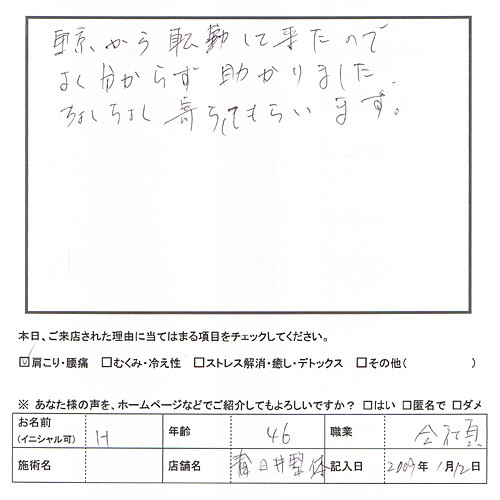 東京から転勤して来たので
よく分からず助かりました
ちょくちょく寄らしてもらいます。
本日、ご来店された理由に当てはまる項目をチェックしてください。
☑肩こり・腰痛 □むくみ・冷え性 □ストレス解消・癒し・デトックス □その他( )
※ あなた様の声を、ホームページなどでご紹介してもよろしいですか? □はい □匿名で □ダメ
お名前(イニシャル可) H 年齢 46 職業 会社員
施術名 店舗名 春日井整体 記入日 2009年 1月12日